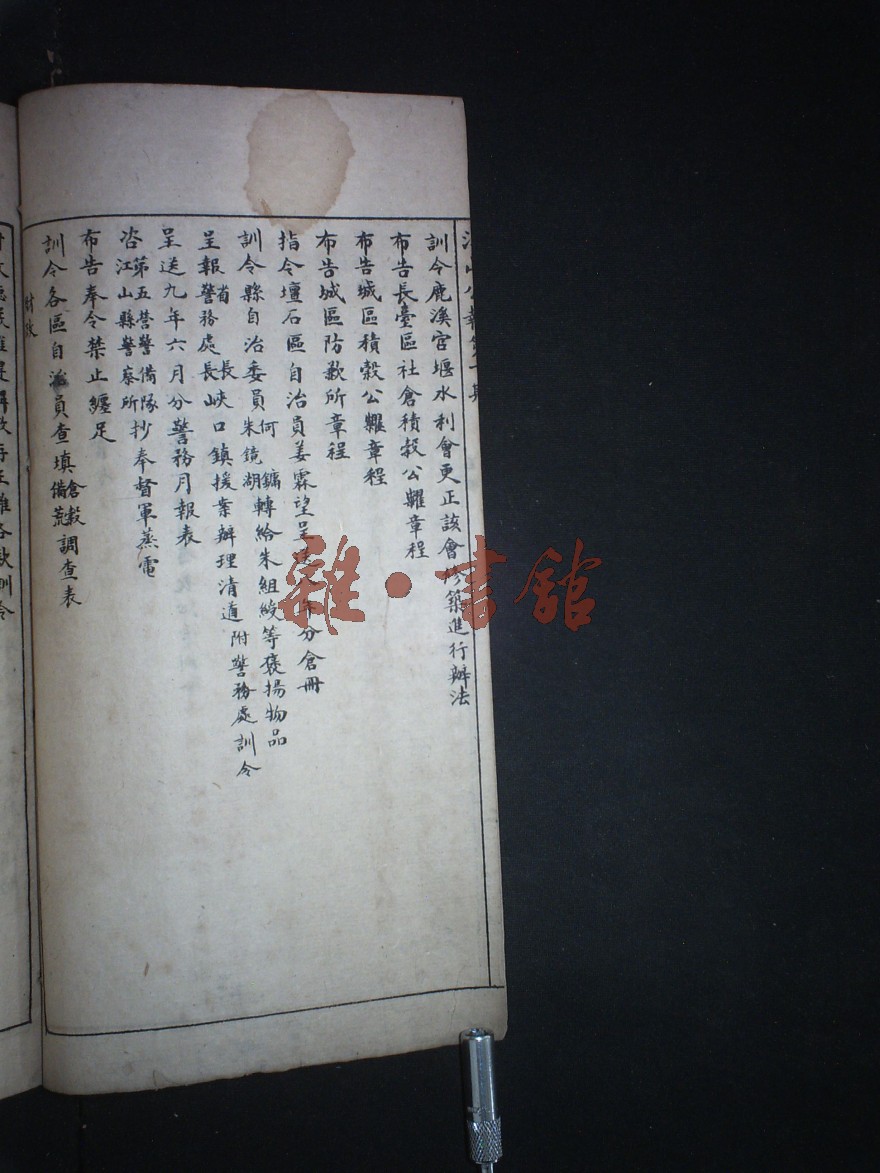 江山公報第十期
訓令鹿溪宮堰水利會更正該會修築進行辦法
布告長臺區社倉積穀公糶章程
布告城區積穀公糶章程
布告城區防歉所章程
指令壇石區自治員姜霖望呈送年分倉冊
訓令縣自治委員何鏞朱鏡湖轉給朱組綬等褒揚物品
呈報省長警務處長峽口鎮援案辦理清道附警務處訓令
呈送九年六月分警務月報表
咨第五營警備隊江山縣警察所抄奉督軍蒸電
布告奉令禁止纏足
訓令各區自治員查填倉穀備荒調查表
財政
雜·書館